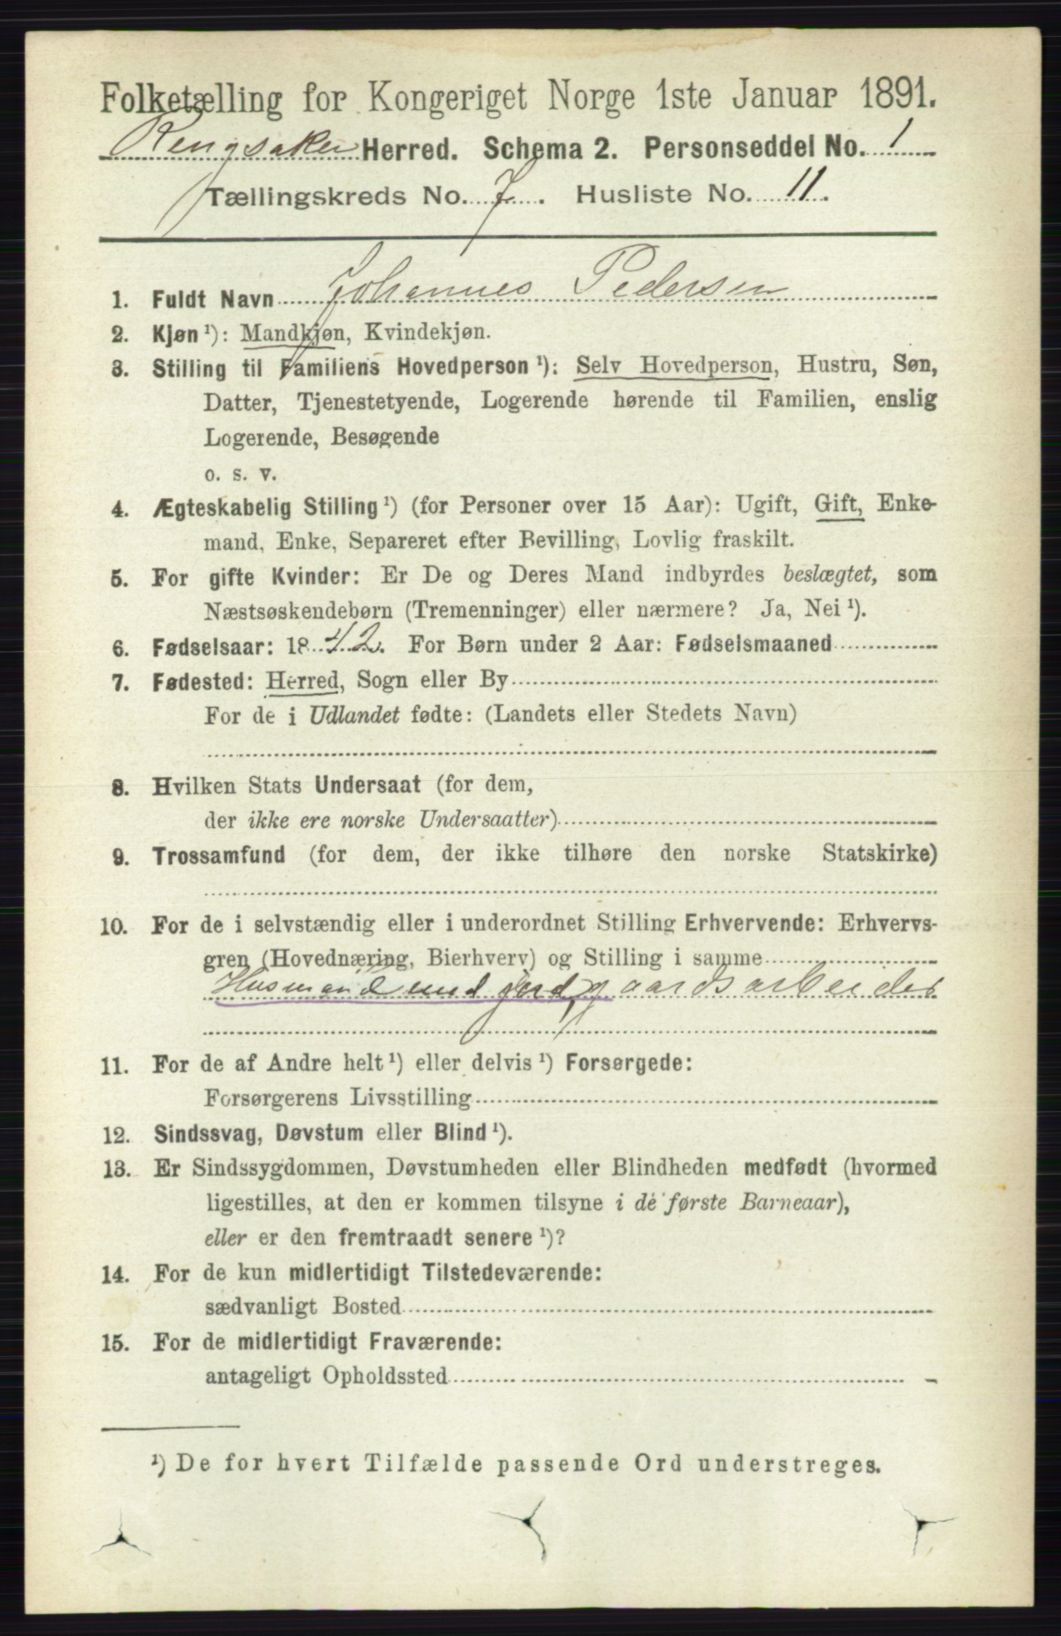 Folketælling for Kongeriget Norge 1ste Januar 1891.
Ringsaker Herred. Schema 2. Personseddel No. 1
Tællingskreds No. 7. Husliste No. 11.
1. Fuldt Navn Johannes Pedersen
2. Kjøn ¹): Mandkjøn, Kvindekjøn.
3. Stilling til Familiens Hovedperson ¹): Selv Hovedperson, Hustru, Søn,
Datter, Tjenestetyende, Logerende hørende til Familien, enslig
Logerende, Besøgende
o. s. v.
4. Ægteskabelig Stilling ¹) (for Personer over 15 Aar): Ugift, Gift, Enke-
mand, Enke, Separeret efter Bevilling, Lovlig fraskilt.
5. For gifte Kvinder: Er De og Deres Mand indbyrdes beslægtet, som
Næstsøskendebørn (Tremenninger) eller nærmere? Ja, Nei ¹).
6. Fødselsaar: 1842. For Børn under 2 Aar: Fødselsmaaned
7. Fødested: Herred, Sogn eller By
For de i Udlandet fødte: (Landets eller Stedets Navn)
8. Hvilken Stats Undersaat (for dem,
der ikke ere norske Undersaatter)
9. Trossamfund (for dem, der ikke tilhøre den norske Statskirke)
10. For de i selvstændig eller i underordnet Stilling Erhvervende: Erhvervs-
gren (Hovednæring, Bierhverv) og Stilling i samme
Husmand med jord, gaardsarbeider
11. For de af Andre helt ¹) eller delvis ¹) Forsørgede:
Forsørgerens Livsstilling
12. Sindssvag, Døvstum eller Blind ¹).
13. Er Sindssygdommen, Døvstumheden eller Blindheden medfødt (hvormed
ligestilles, at den er kommen tilsyne i de første Barneaar),
eller er den fremtraadt senere ¹)?
14. For de kun midlertidigt Tilstedeværende:
sædvanligt Bosted
15. For de midlertidigt Fraværende:
antageligt Opholdssted
¹) De for hvert Tilfælde passende Ord understreges.